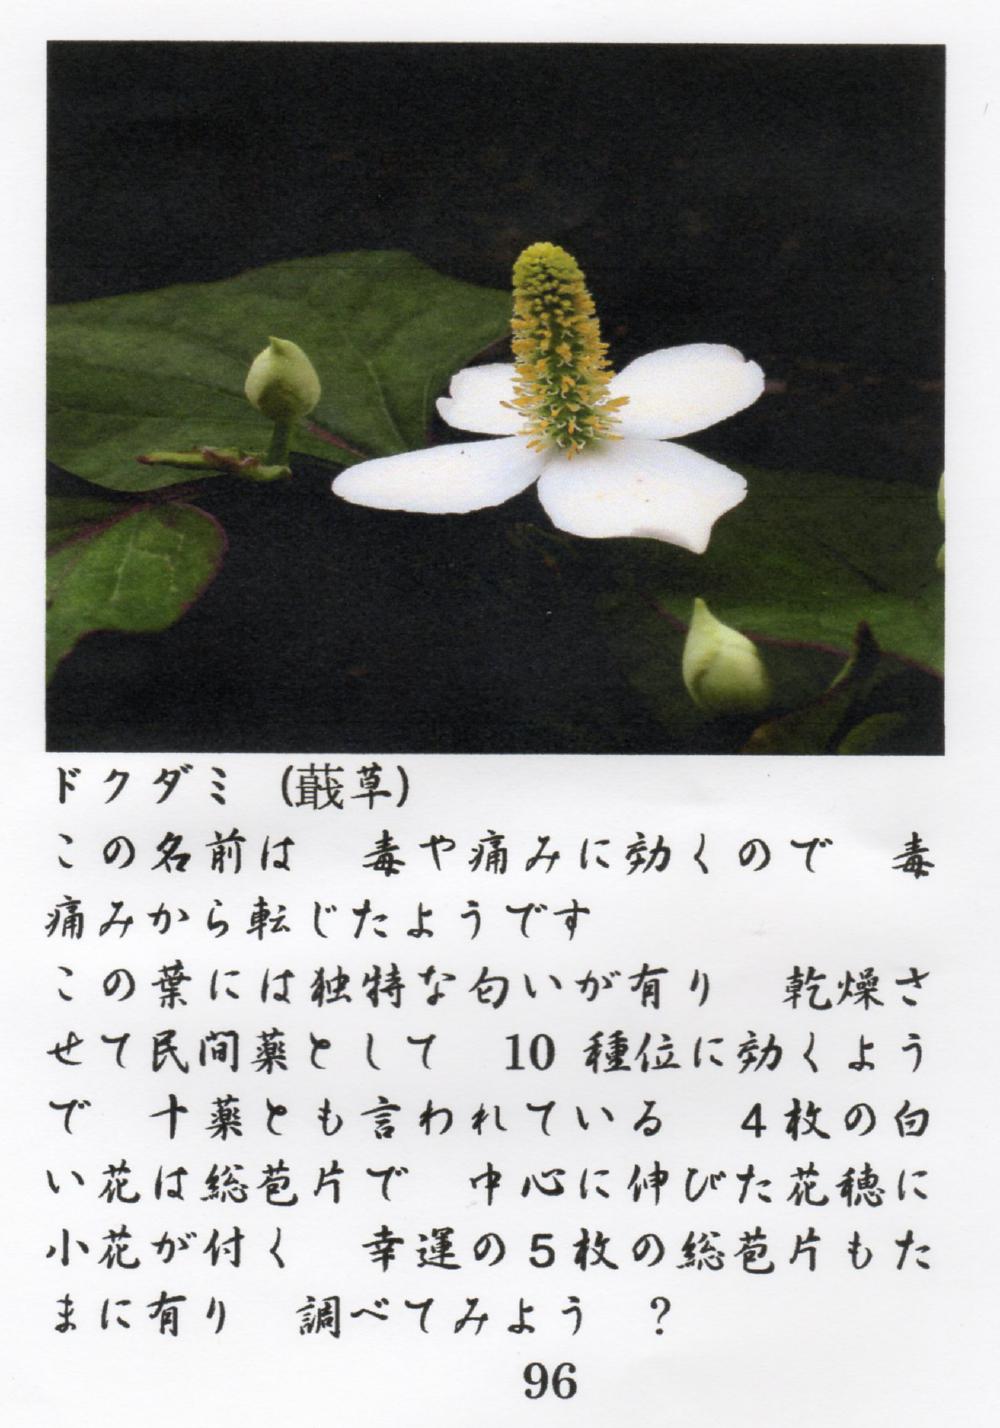 ドクダミ （蕺草）
この名前は　毒や痛みに効くので　毒
痛みから転じたようです
この葉には独特な匂いが有り　乾燥さ
せて民間薬として　10 種位に効くよう
で　十薬とも言われている　４枚の白
い花は総苞片で　中心に伸びた花穂に
小花が付く　幸運の５枚の総苞片もた
まに有り　調べてみよう　？
96